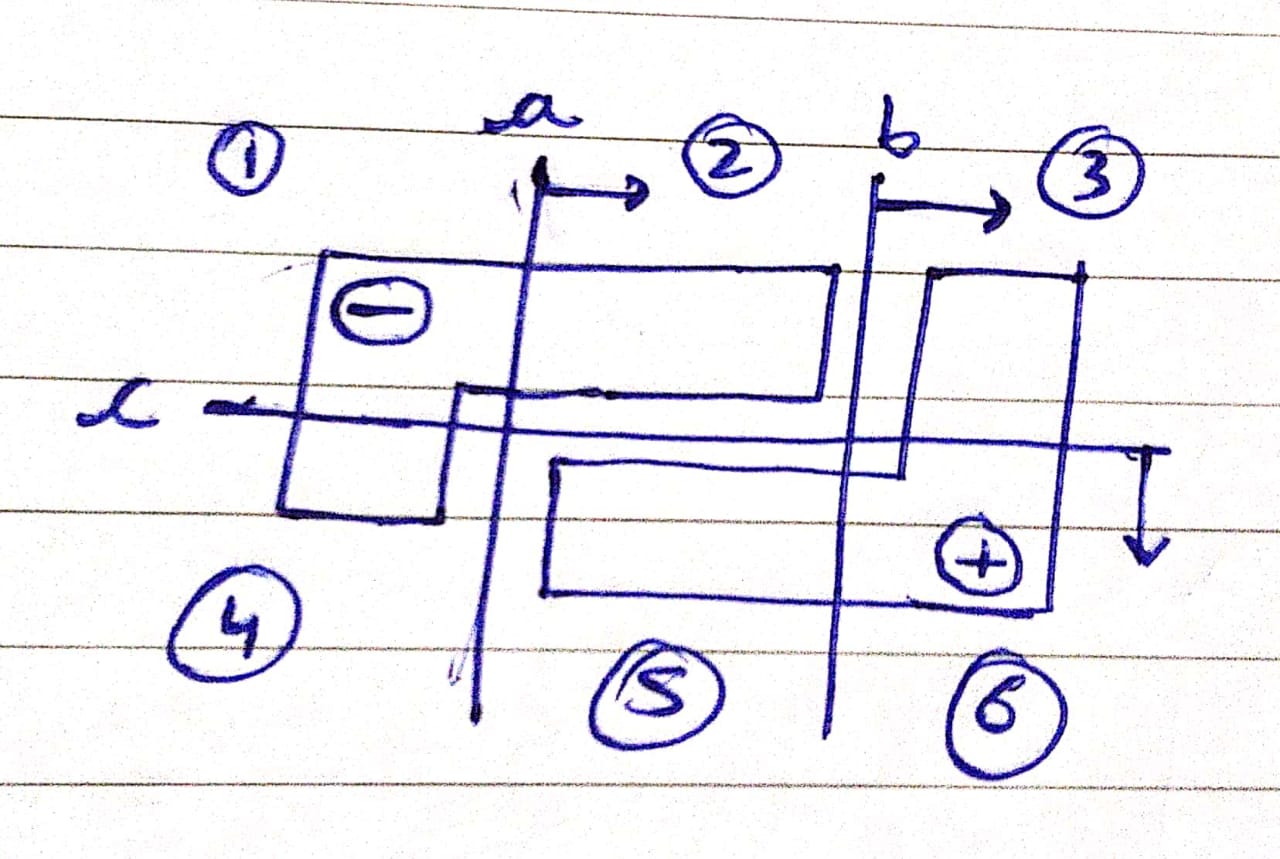 a b
① ② ③
⊖
c
⊕
④ ⑤ ⑥